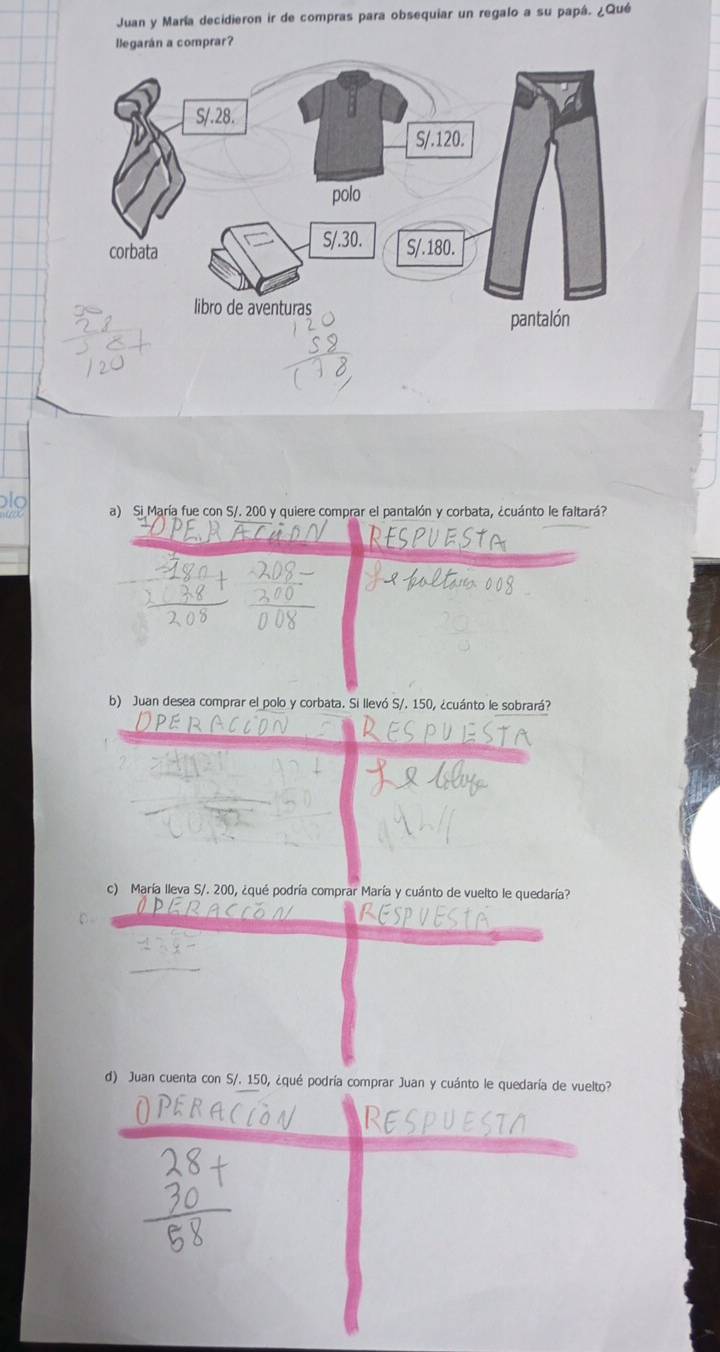 Juan y María decidieron ir de compras para obsequiar un regalo a su papá. ¿Qué
llegarán a comprar?
S/.28.
S/.120.
polo
corbata
S/.30.
S/.180.
libro de aventuras
pantalón
28
58+
120
120
58
178
a) Si María fue con S/. 200 y quiere comprar el pantalón y corbata, ¿cuánto le faltará?
OPERACIÓN RESPUESTA
180+ 208-
28 200
208 008
008
b) Juan desea comprar el polo y corbata. Si llevó S/. 150, ¿cuánto le sobrará?
OPERACIÓN RESPUESTA
c) María lleva S/. 200, ¿qué podría comprar María y cuánto de vuelto le quedaría?
OPERACIÓN RESPUESTA
d) Juan cuenta con S/. 150, ¿qué podría comprar Juan y cuánto le quedaría de vuelto?
OPERACIÓN RESPUESTA
28+
30
58